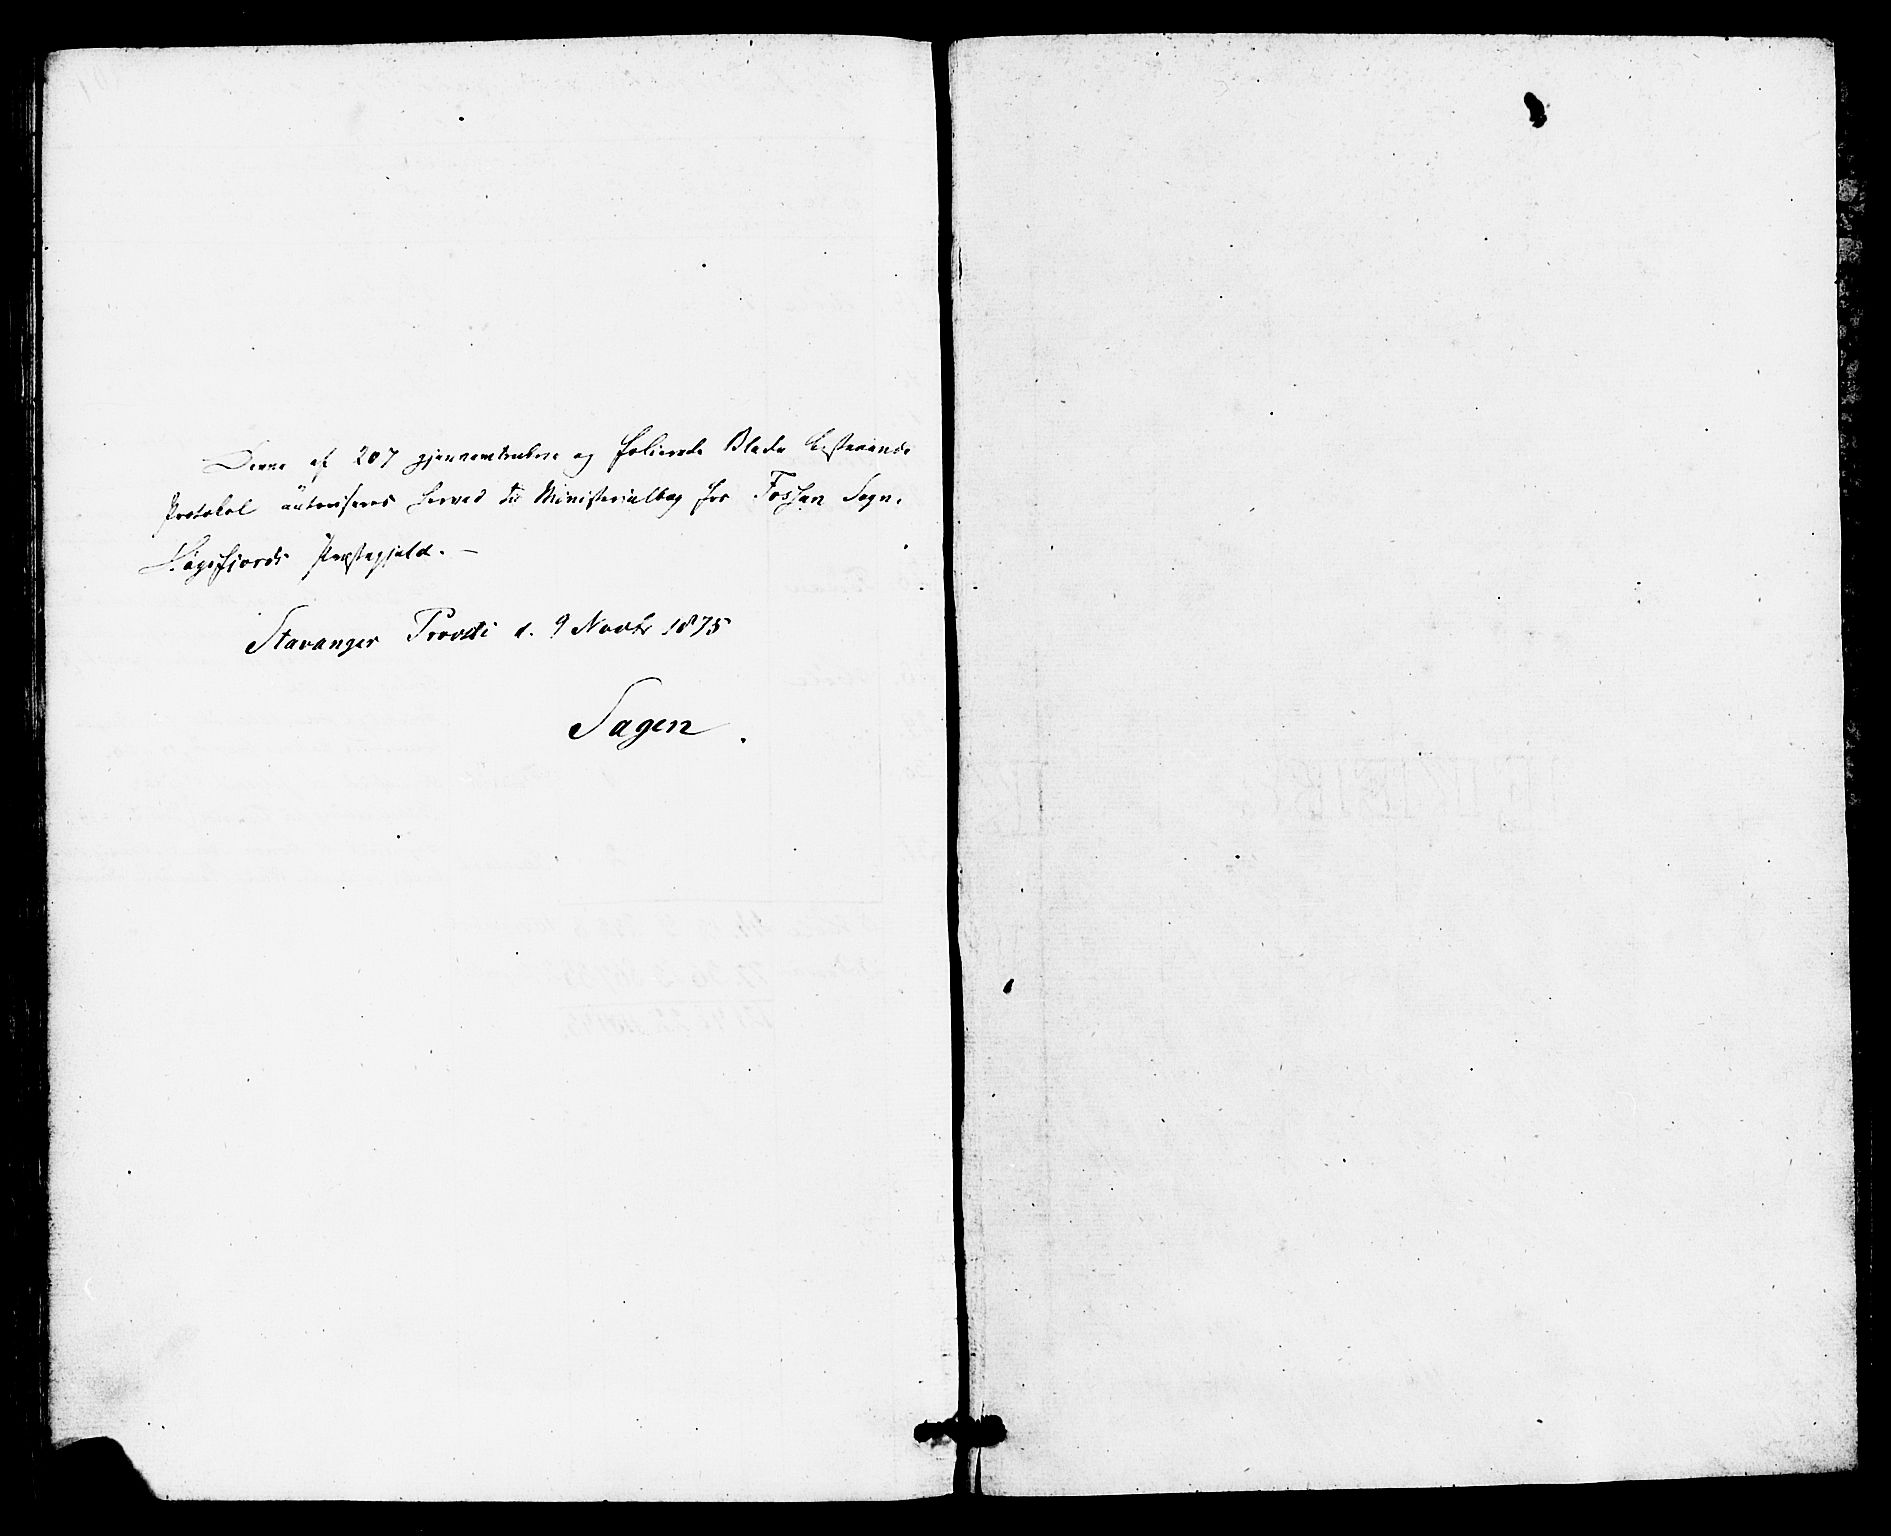 Denne af 207 gjennemtrukne og folierede Blade bestaaende
Protokol autoriseres herved til Ministerialbog for Fossan Sogn,
Høgsfjords Præstegjeld. —
Stavanger Provsti d. 9 Novbr 1875
Sagen.